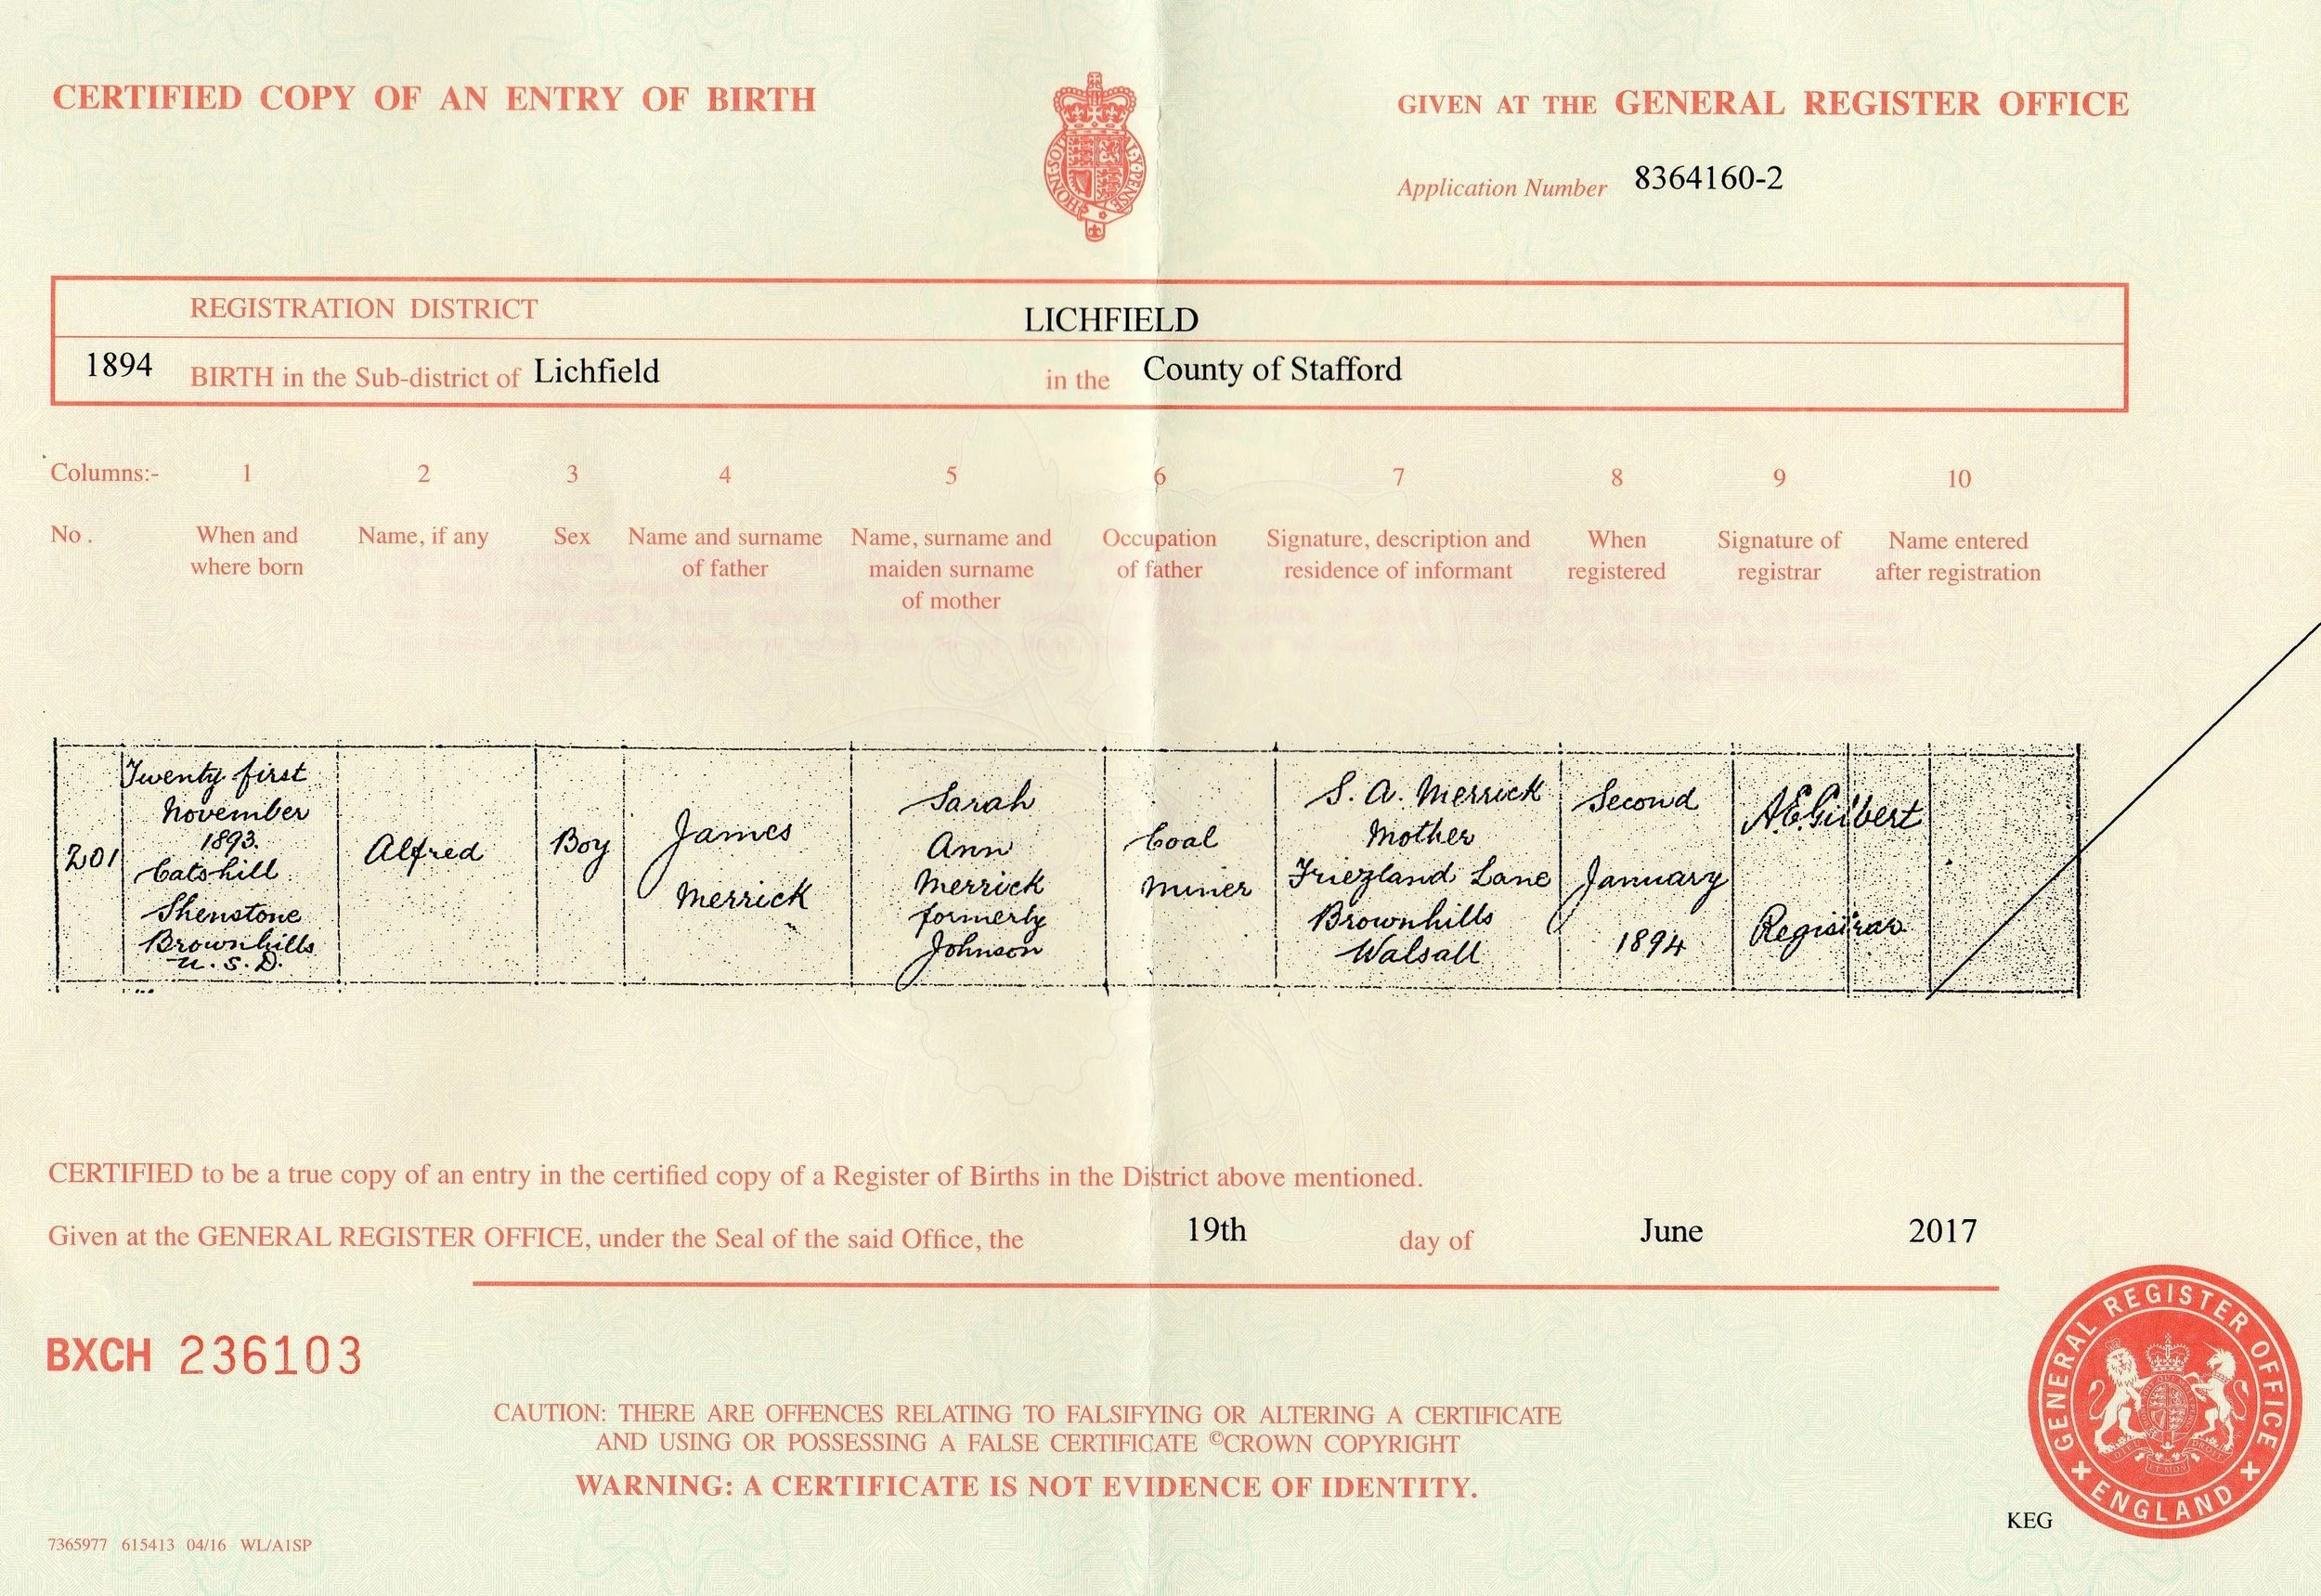 CERTIFIED COPY OF AN ENTRY OF BIRTH
GIVEN AT THE GENERAL REGISTER OFFICE
HONI·SOIT
MAL·Y·PENSE
Application Number 8364160-2
REGISTRATION DISTRICT LICHFIELD
1894 BIRTH in the Sub-district of Lichfield in the County of Stafford
Columns:- 1 2 3 4 5 6 7 8 9 10
No. When and where born Name, if any Sex Name and surname of father Name, surname and maiden surname of mother Occupation of father Signature, description and residence of informant When registered Signature of registrar Name entered after registration
201
Twenty first
November
1893.
Catshill
Shenstone
Brownhills
U.S.D.
Alfred
Boy
James
Merrick
Sarah
Ann
Merrick
formerly
Johnson
Coal
Miner
S. A. Merrick
Mother
Friezland Lane
Brownhills
Walsall
Second
January
1894
A.E. Gilbert
Registrar
CERTIFIED to be a true copy of an entry in the certified copy of a Register of Births in the District above mentioned.
Given at the GENERAL REGISTER OFFICE, under the Seal of the said Office, the 19th day of June 2017
BXCH 236103
CAUTION: THERE ARE OFFENCES RELATING TO FALSIFYING OR ALTERING A CERTIFICATE
AND USING OR POSSESSING A FALSE CERTIFICATE ©CROWN COPYRIGHT
WARNING: A CERTIFICATE IS NOT EVIDENCE OF IDENTITY.
GENERAL REGISTER OFFICE
ENGLAND
KEG
7365977 615413 04/16 WL/A1SP